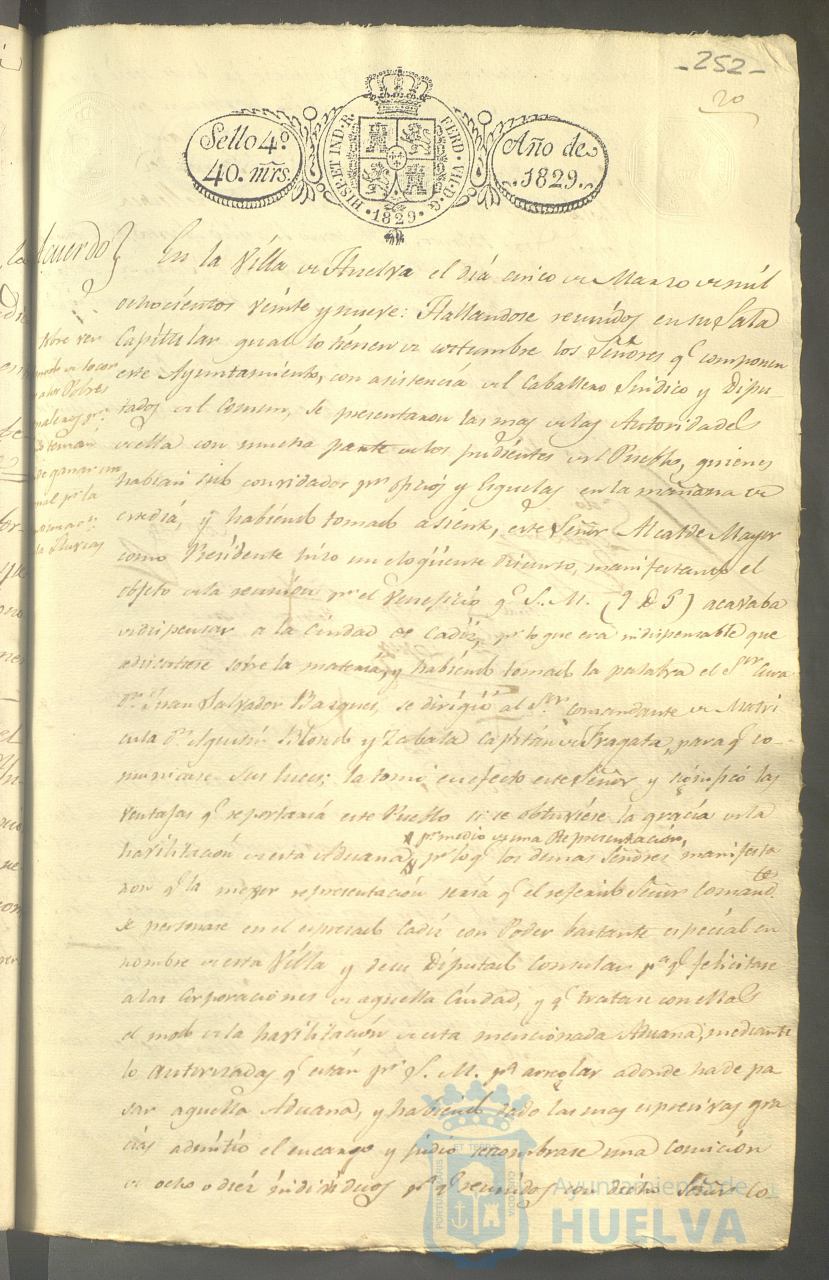 -252-
20
Sello 4º
40. mrs.
HISP. ET IND. R.
FERD. VII. D. G.
1829
Año de
1829.
Acuerdo
En la Villa de Huelva el diá cinco de Marzo de mil
ochocientos veinte y nueve: Hallandose reunidos en su Sala
Capitular qual lo tienen de costumbre los Señores qe componen
este Ayuntamiento, con asistencia del Caballero Sindico y Dipu-
tados del Comun, se presentaron las mas de las Autoridades
de ella con mucha parte de los pudientes del Pueblo, quienes
habian sido convidados pr oficios y Esquelas en la mañana de
este diá, y habiendo tomado asiento, este Señor Alcalde Mayor
como Presidente hizo un eloqüente discurso, manifestando el
objeto de la reunión pr el veneficio qe S. M. (Q D G) acavaba
de dispensar a la Ciudad de Cadiz, pr lo que era indispensable que
se sobre la materia, y habiendo tomado la palabra el Sor Cura
Dn Juan Salvador Bazques, se dirigió al Sor Comandante de Matri
cula Dn Agustin y Zabala Capitán de Fragata, para qe co-
municase sus luces; la tomó en efecto este Señor y las
ventajas qe reportariá este Pueblo si se obtuviese la gracia de la
havilitación de esta Aduana pr medio de una Representación,
pr lo qe los demas Señores manifesta
ron qe la mejor representación seriá qe el referido Señor Comandte
se personase en el expresado Cadiz con Poder bastante especial en
nombre de esta Villa y de su Diputado Consular pa qe felicitase
a las Corporaciones de aquella Ciudad, y qe tratase con ellas
el modo de la havilitación de esta mencionada Aduana, mediante
lo autorizadas qe están pr S. M. pa arreglar adonde ha de pa
sar aquella Aduana, y habiendo dado las mas expresivas gra
cias admitio el encargo y pidió se nombrase una Comición
de ocho o diez individuos pa qe reunidos con dicho Señor Co-
Ayuntamiento de
HUELVA